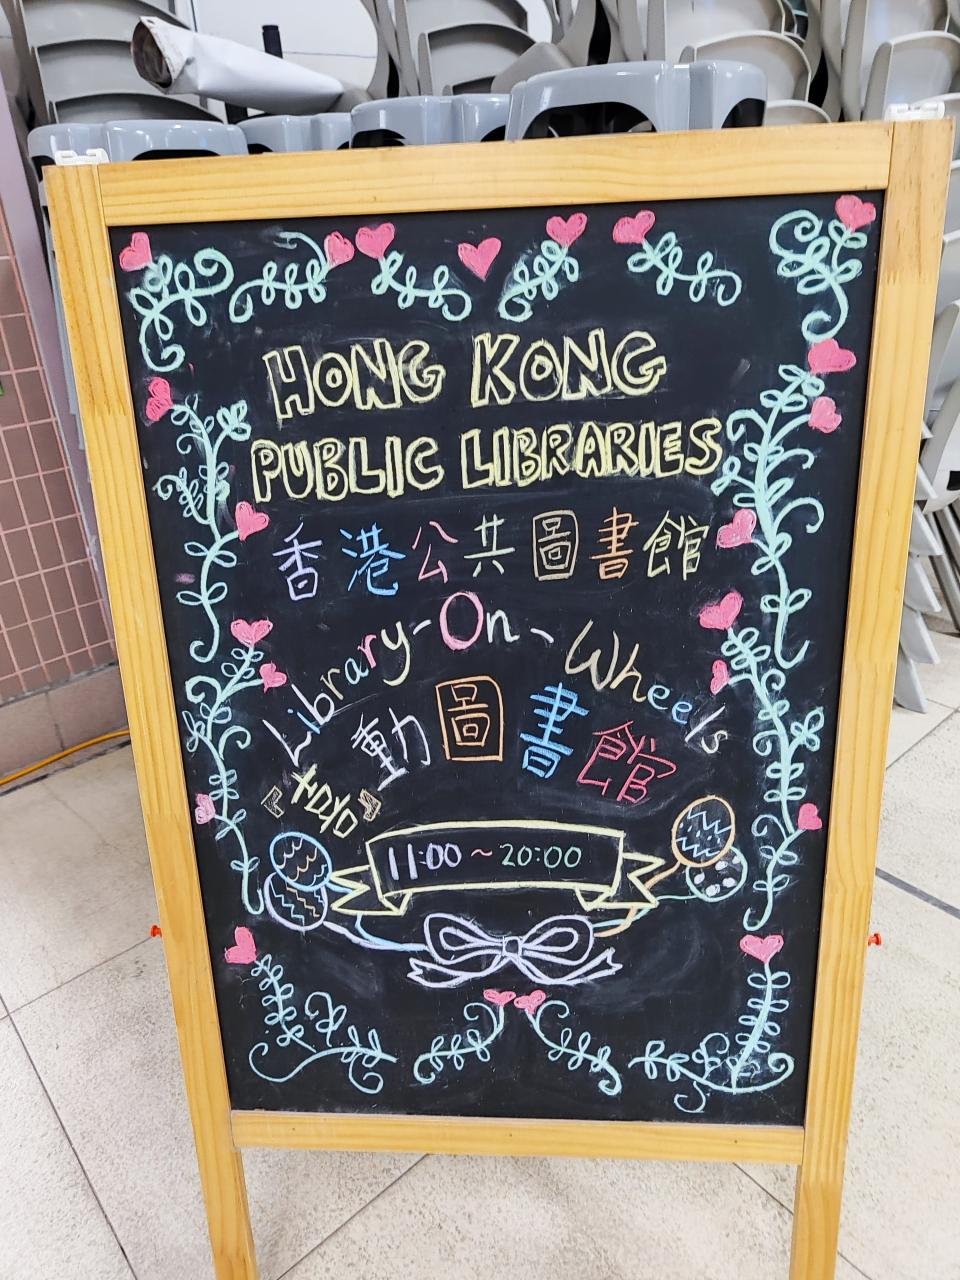 HONG KONG
PUBLIC LIBRARIES
香港公共圖書館
Library-On-Wheels
『喜』動圖書館
11:00 ~ 20:00